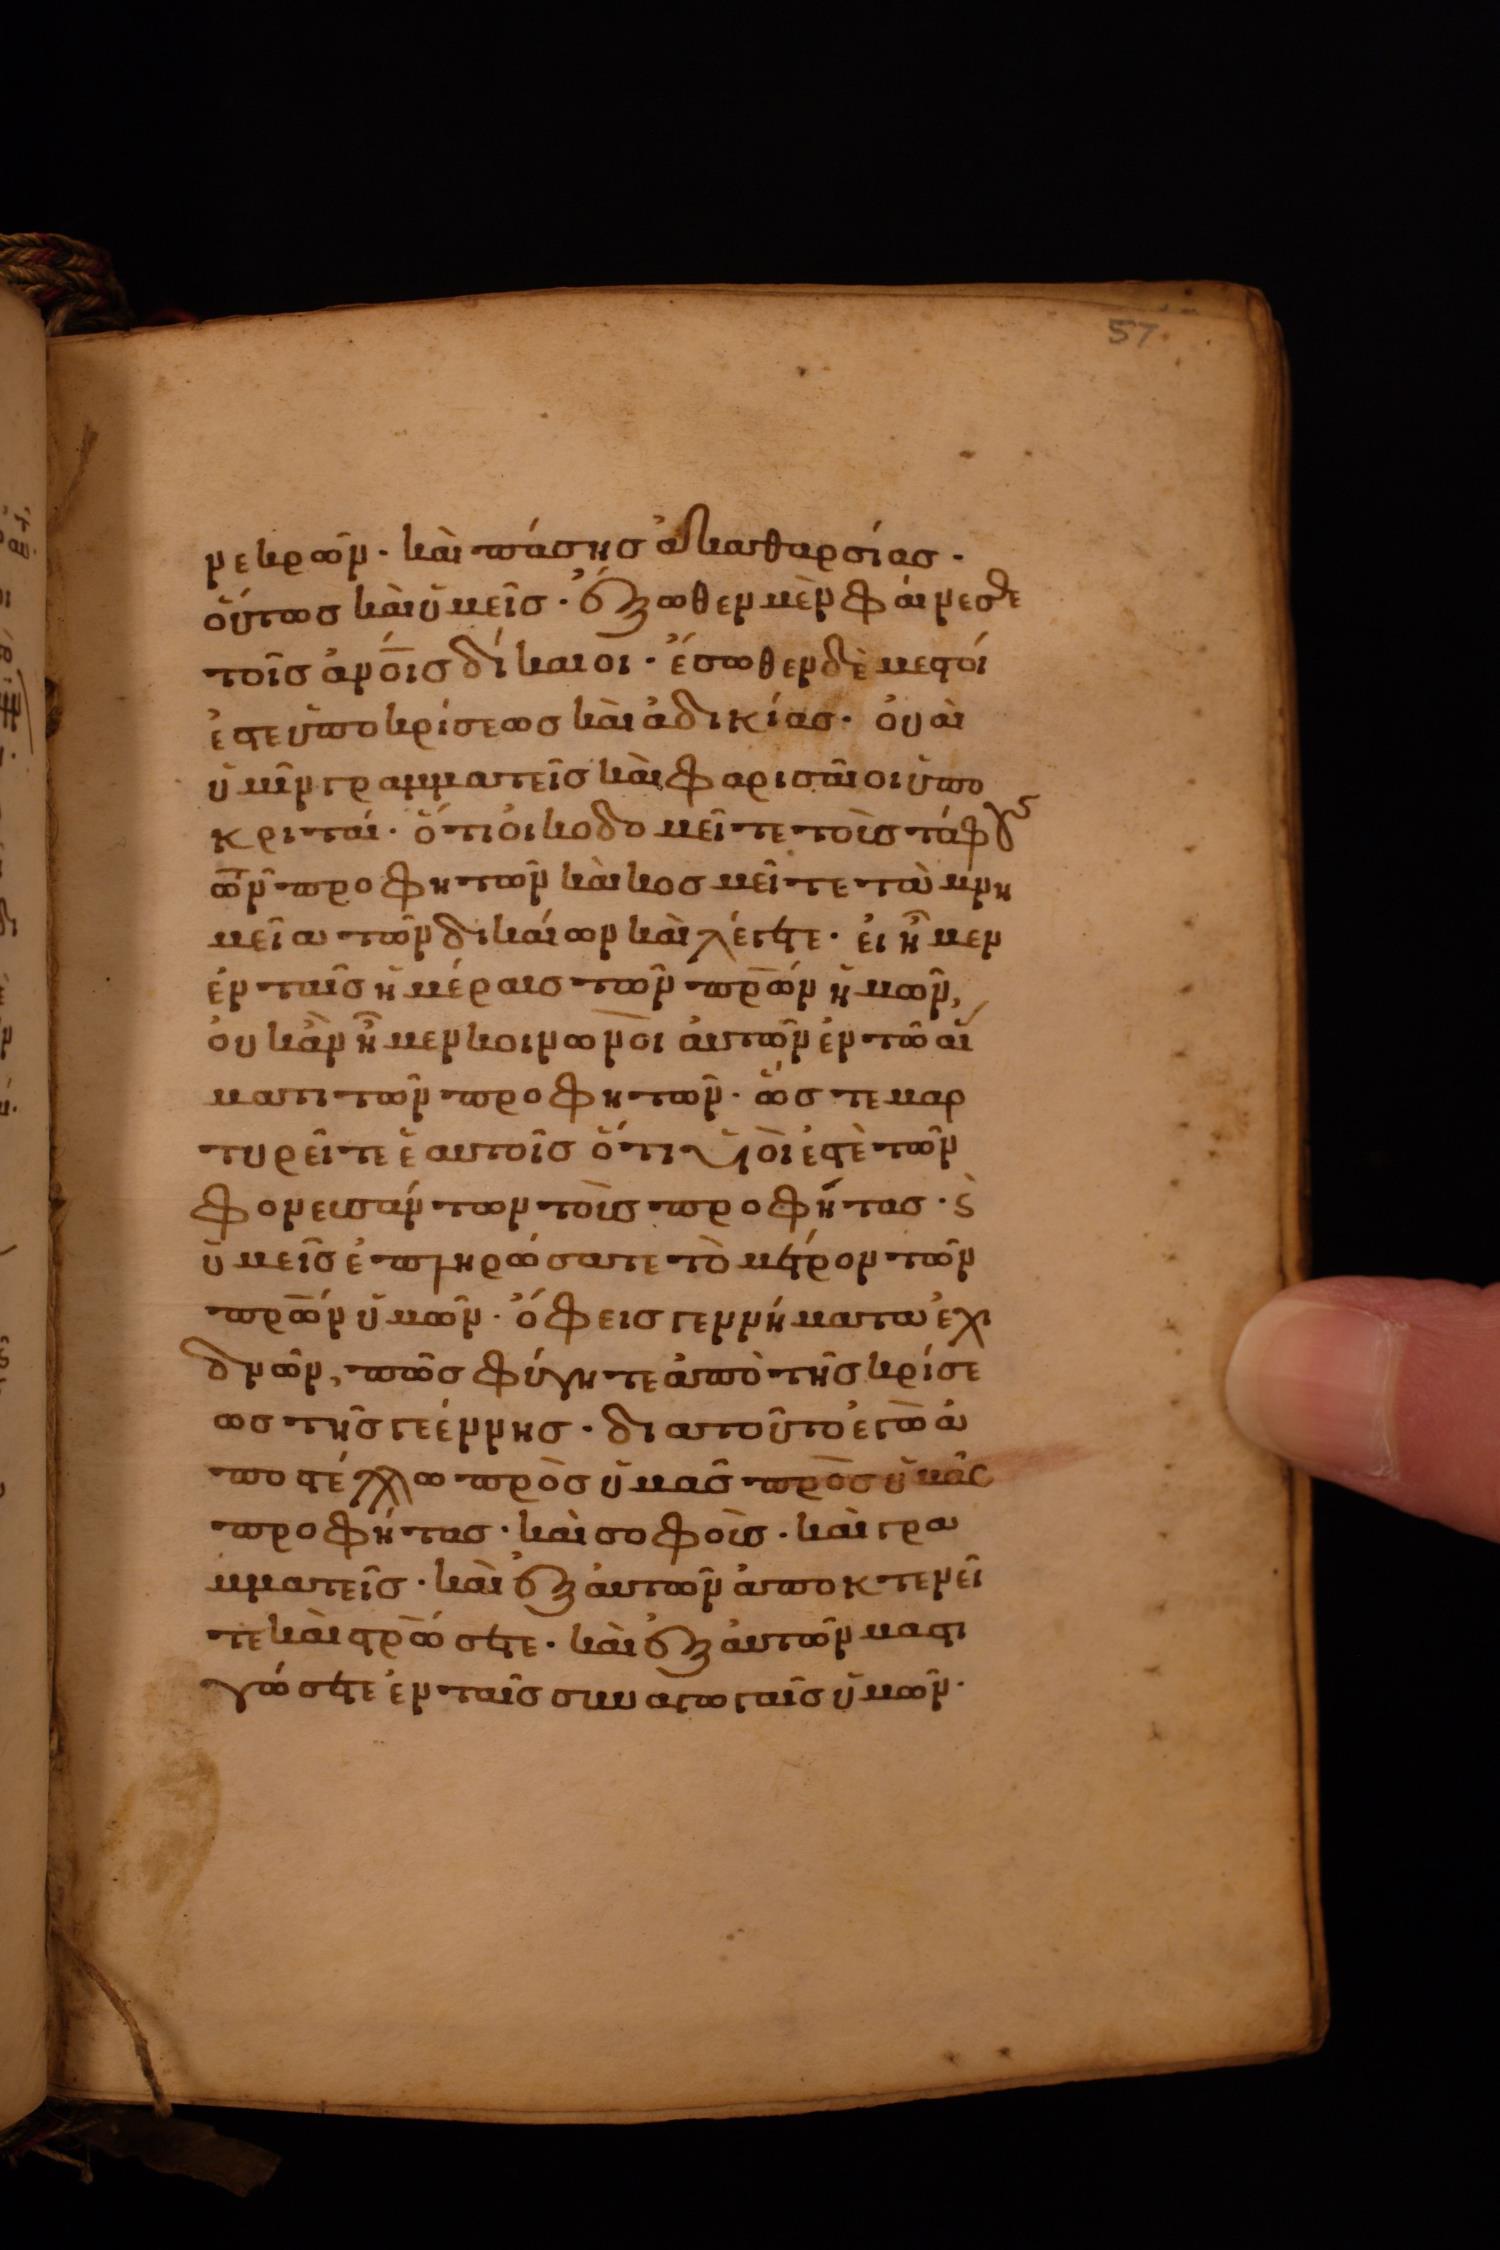 57
νεκρῶν · καὶ πάσης ἀκαθαρσίας ·
οὕτως καὶ ὑμεῖς · ἔξωθεν μὲν φαίνεσθε
τοῖς ἀν̅οις δίκαιοι · ἔσωθεν δὲ μεστοί
ἐστε ὑποκρίσεως καὶ ἀδικίας · οὐαὶ
ὑμῖν γραμματεῖς καὶ φαρισαῖοι ὑπο
κριταί · ὅτι οἰκοδομεῖτε τοὺς τάφους
τῶν προφητῶν καὶ κοσμεῖτε τὰ μνη
μεῖα τῶν δικαίων καὶ λέγετε · εἰ ἦμεν
ἐν ταῖς ἡμέραις τῶν πρ̅ων ἡμῶν,
οὐκ ἂν ἦμεν κοινωνοὶ αὐτῶν ἐν τῶ αἵ
ματι τῶν προφητῶν · ὥστε μαρ
τυρεῖτε ἑαυτοῖς ὅτι υἱοὶ ἐστὲ τῶν
φονευσάντων τοὺς προφήτας · ϛ̀
ὑμεῖς ἐπληρώσατε τὸ μέτρον τῶν
πρ̅ων ὑμῶν · ὄφεις γεννήματα ἐχι
δνῶν, πῶς φύγητε ἀπὸ τῆς κρίσε
ως τῆς γεέννης · διατοῦτο ἐγὼ ἀ
ποστέλλω πρὸς ὑμᾶς πρὸς ὑμᾶς
προφήτας · καὶ σοφοὺς · καὶ γρα
μματεῖς · καὶ ἐξ αὐτῶν ἀποκτενεῖ
τε καὶ στρ̅ώσετε · καὶ ἐξ αὐτῶν μαστι
γώσετε ἐν ταῖς συναγωγαῖς ὑμῶν ·